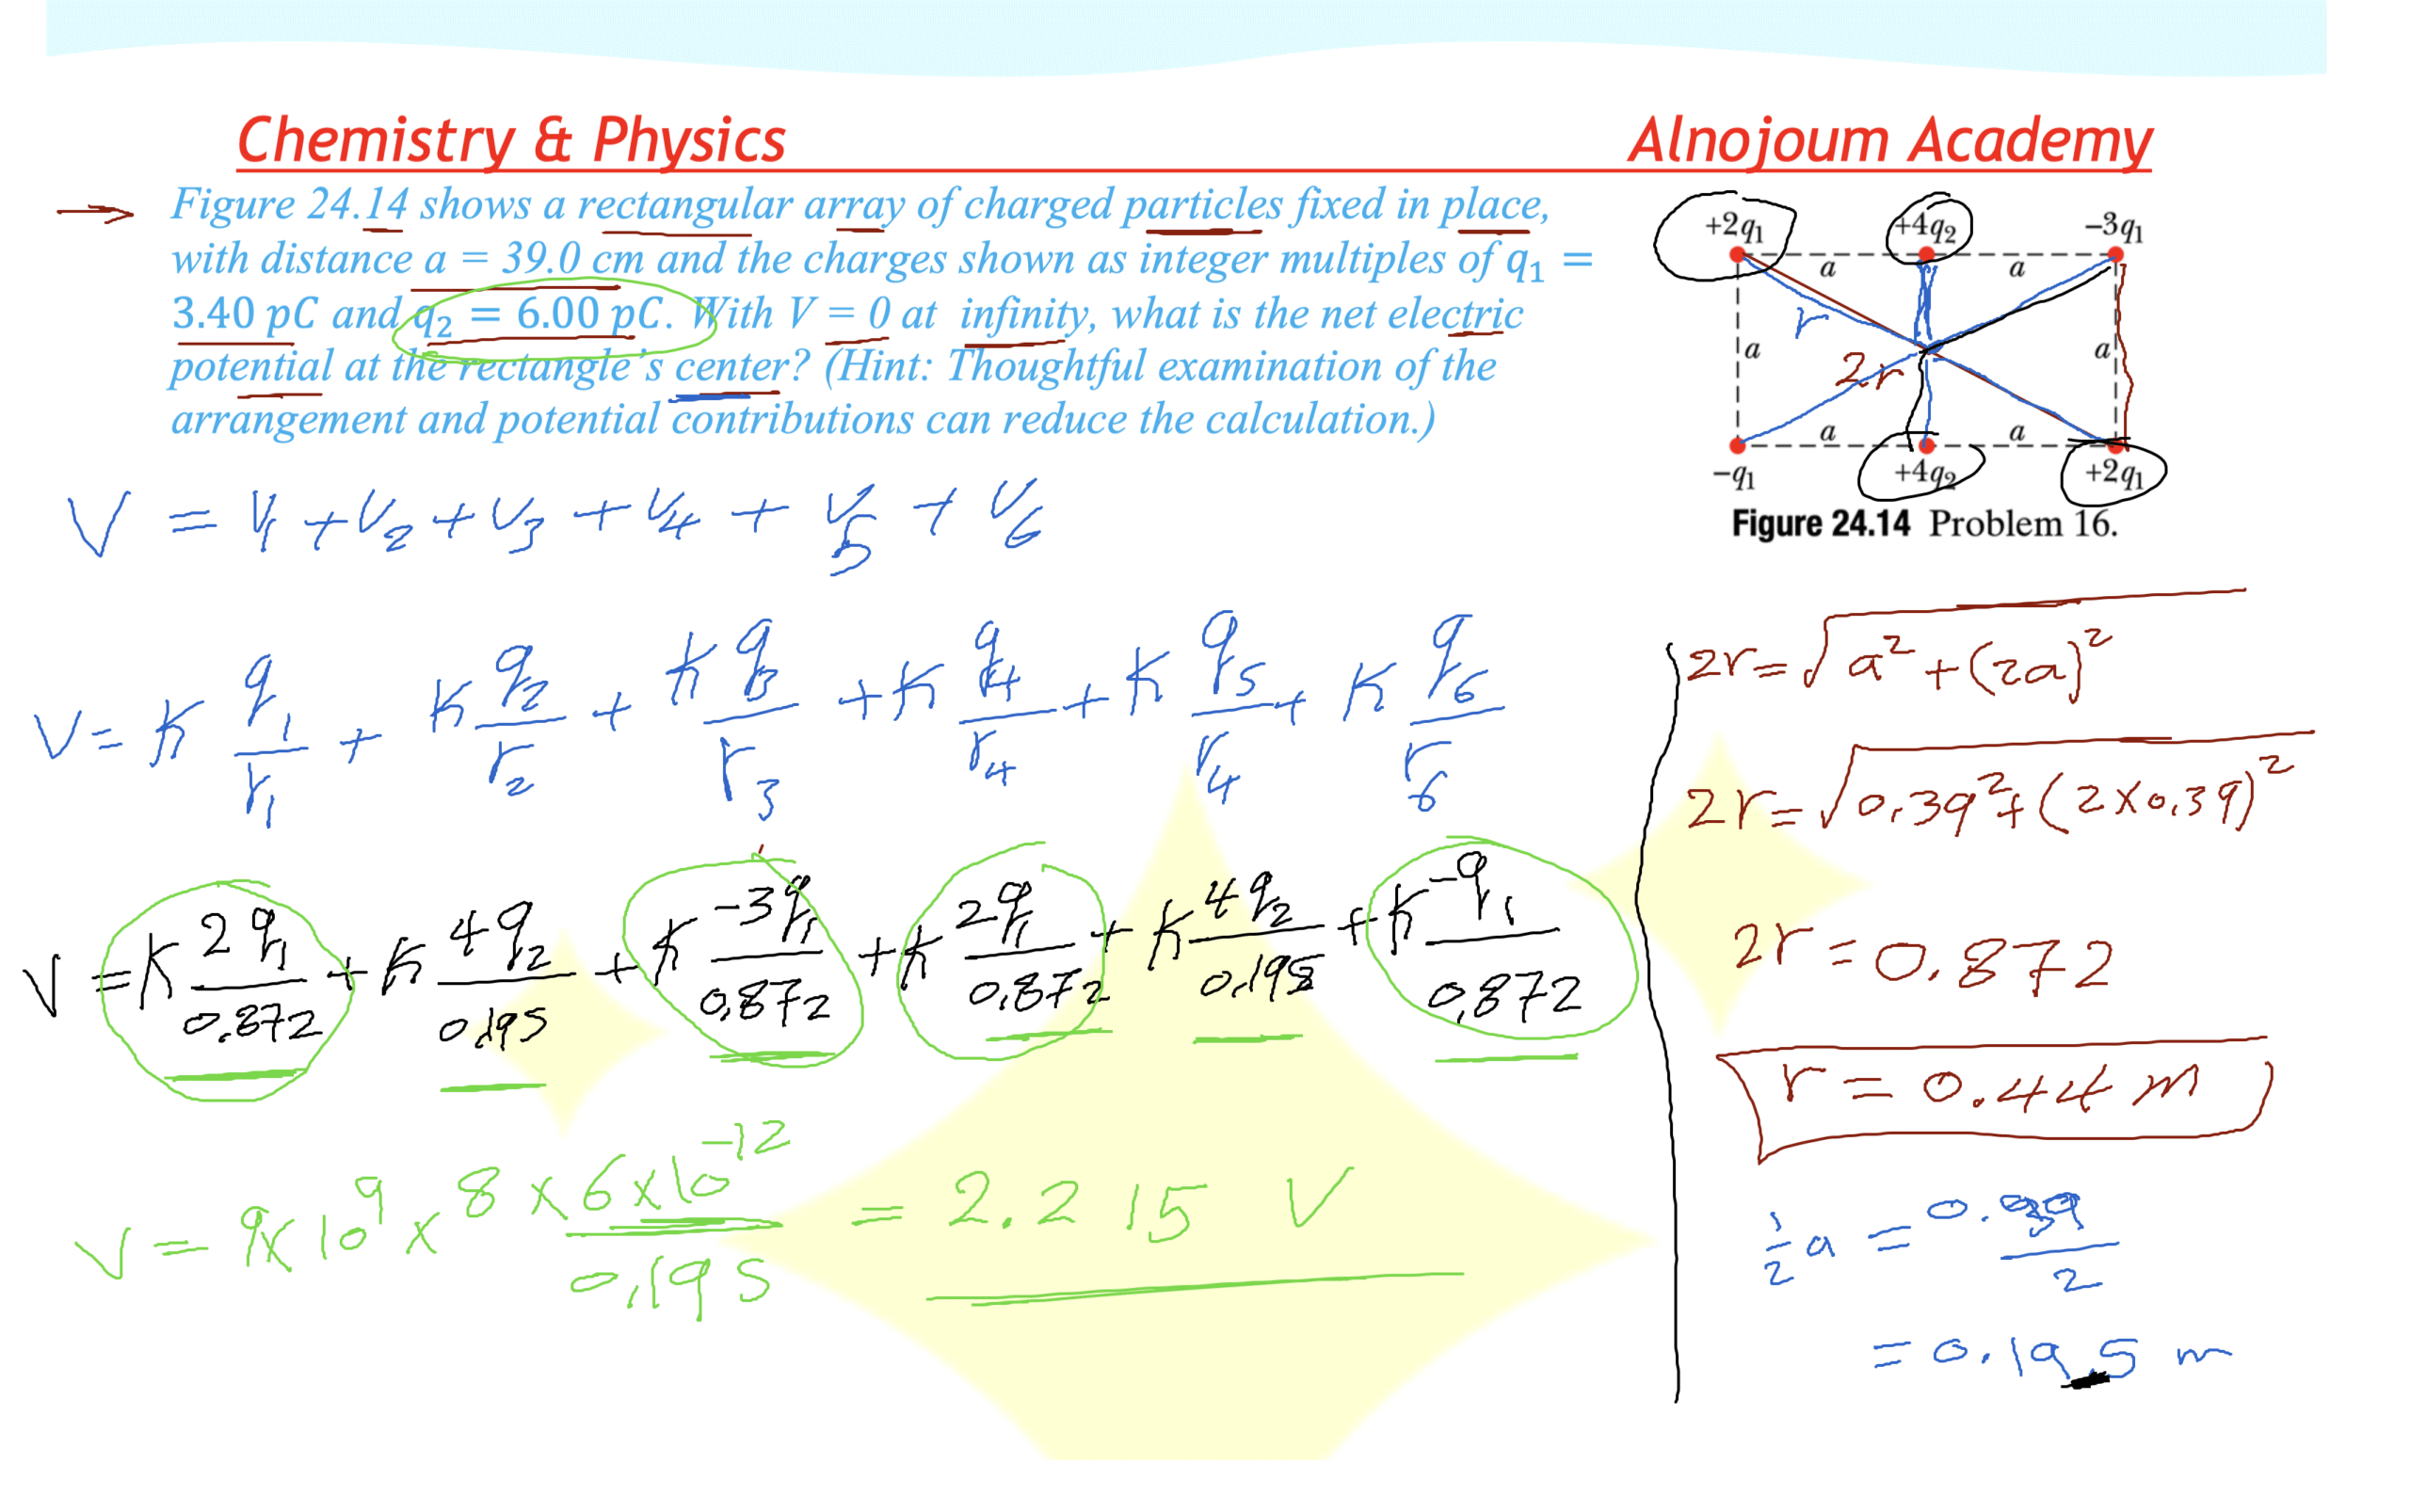 Chemistry & Physics
Alnojoum Academy
→ Figure 24.14 shows a rectangular array of charged particles fixed in place,
with distance a = 39.0 cm and the charges shown as integer multiples of q₁ =
3.40 pC and q₂ = 6.00 pC. With V = 0 at infinity, what is the net electric
potential at the rectangle's center? (Hint: Thoughtful examination of the
arrangement and potential contributions can reduce the calculation.)
+2q₁ +4q₂ −3q₁
a a
r
a 2r a
a a
−q₁ +4q₂ +2q₁
Figure 24.14 Problem 16.
V = V₁ + V₂ + V₃ + V₄ + V₅ + V₆
V = K q₁/r₁ + K q₂/r₂ + K q₃/r₃ + K q₄/r₄ + K q₅/r₄ + K q₆/r₆
V = K 2q₁/0.872 + K 4q₂/0.195 + K −3q₁/0.872 + K 2q₁/0.872 + K 4q₂/0.195 + K −q₁/0.872
V = 9×10⁹ × 8 × 6×10⁻¹²/0.195 = 2.215 V
2r = √a² + (2a)²
2r = √0.39² + (2×0.39)²
2r = 0.872
r = 0.44 m
½a = 0.39/2
= 0.195 m